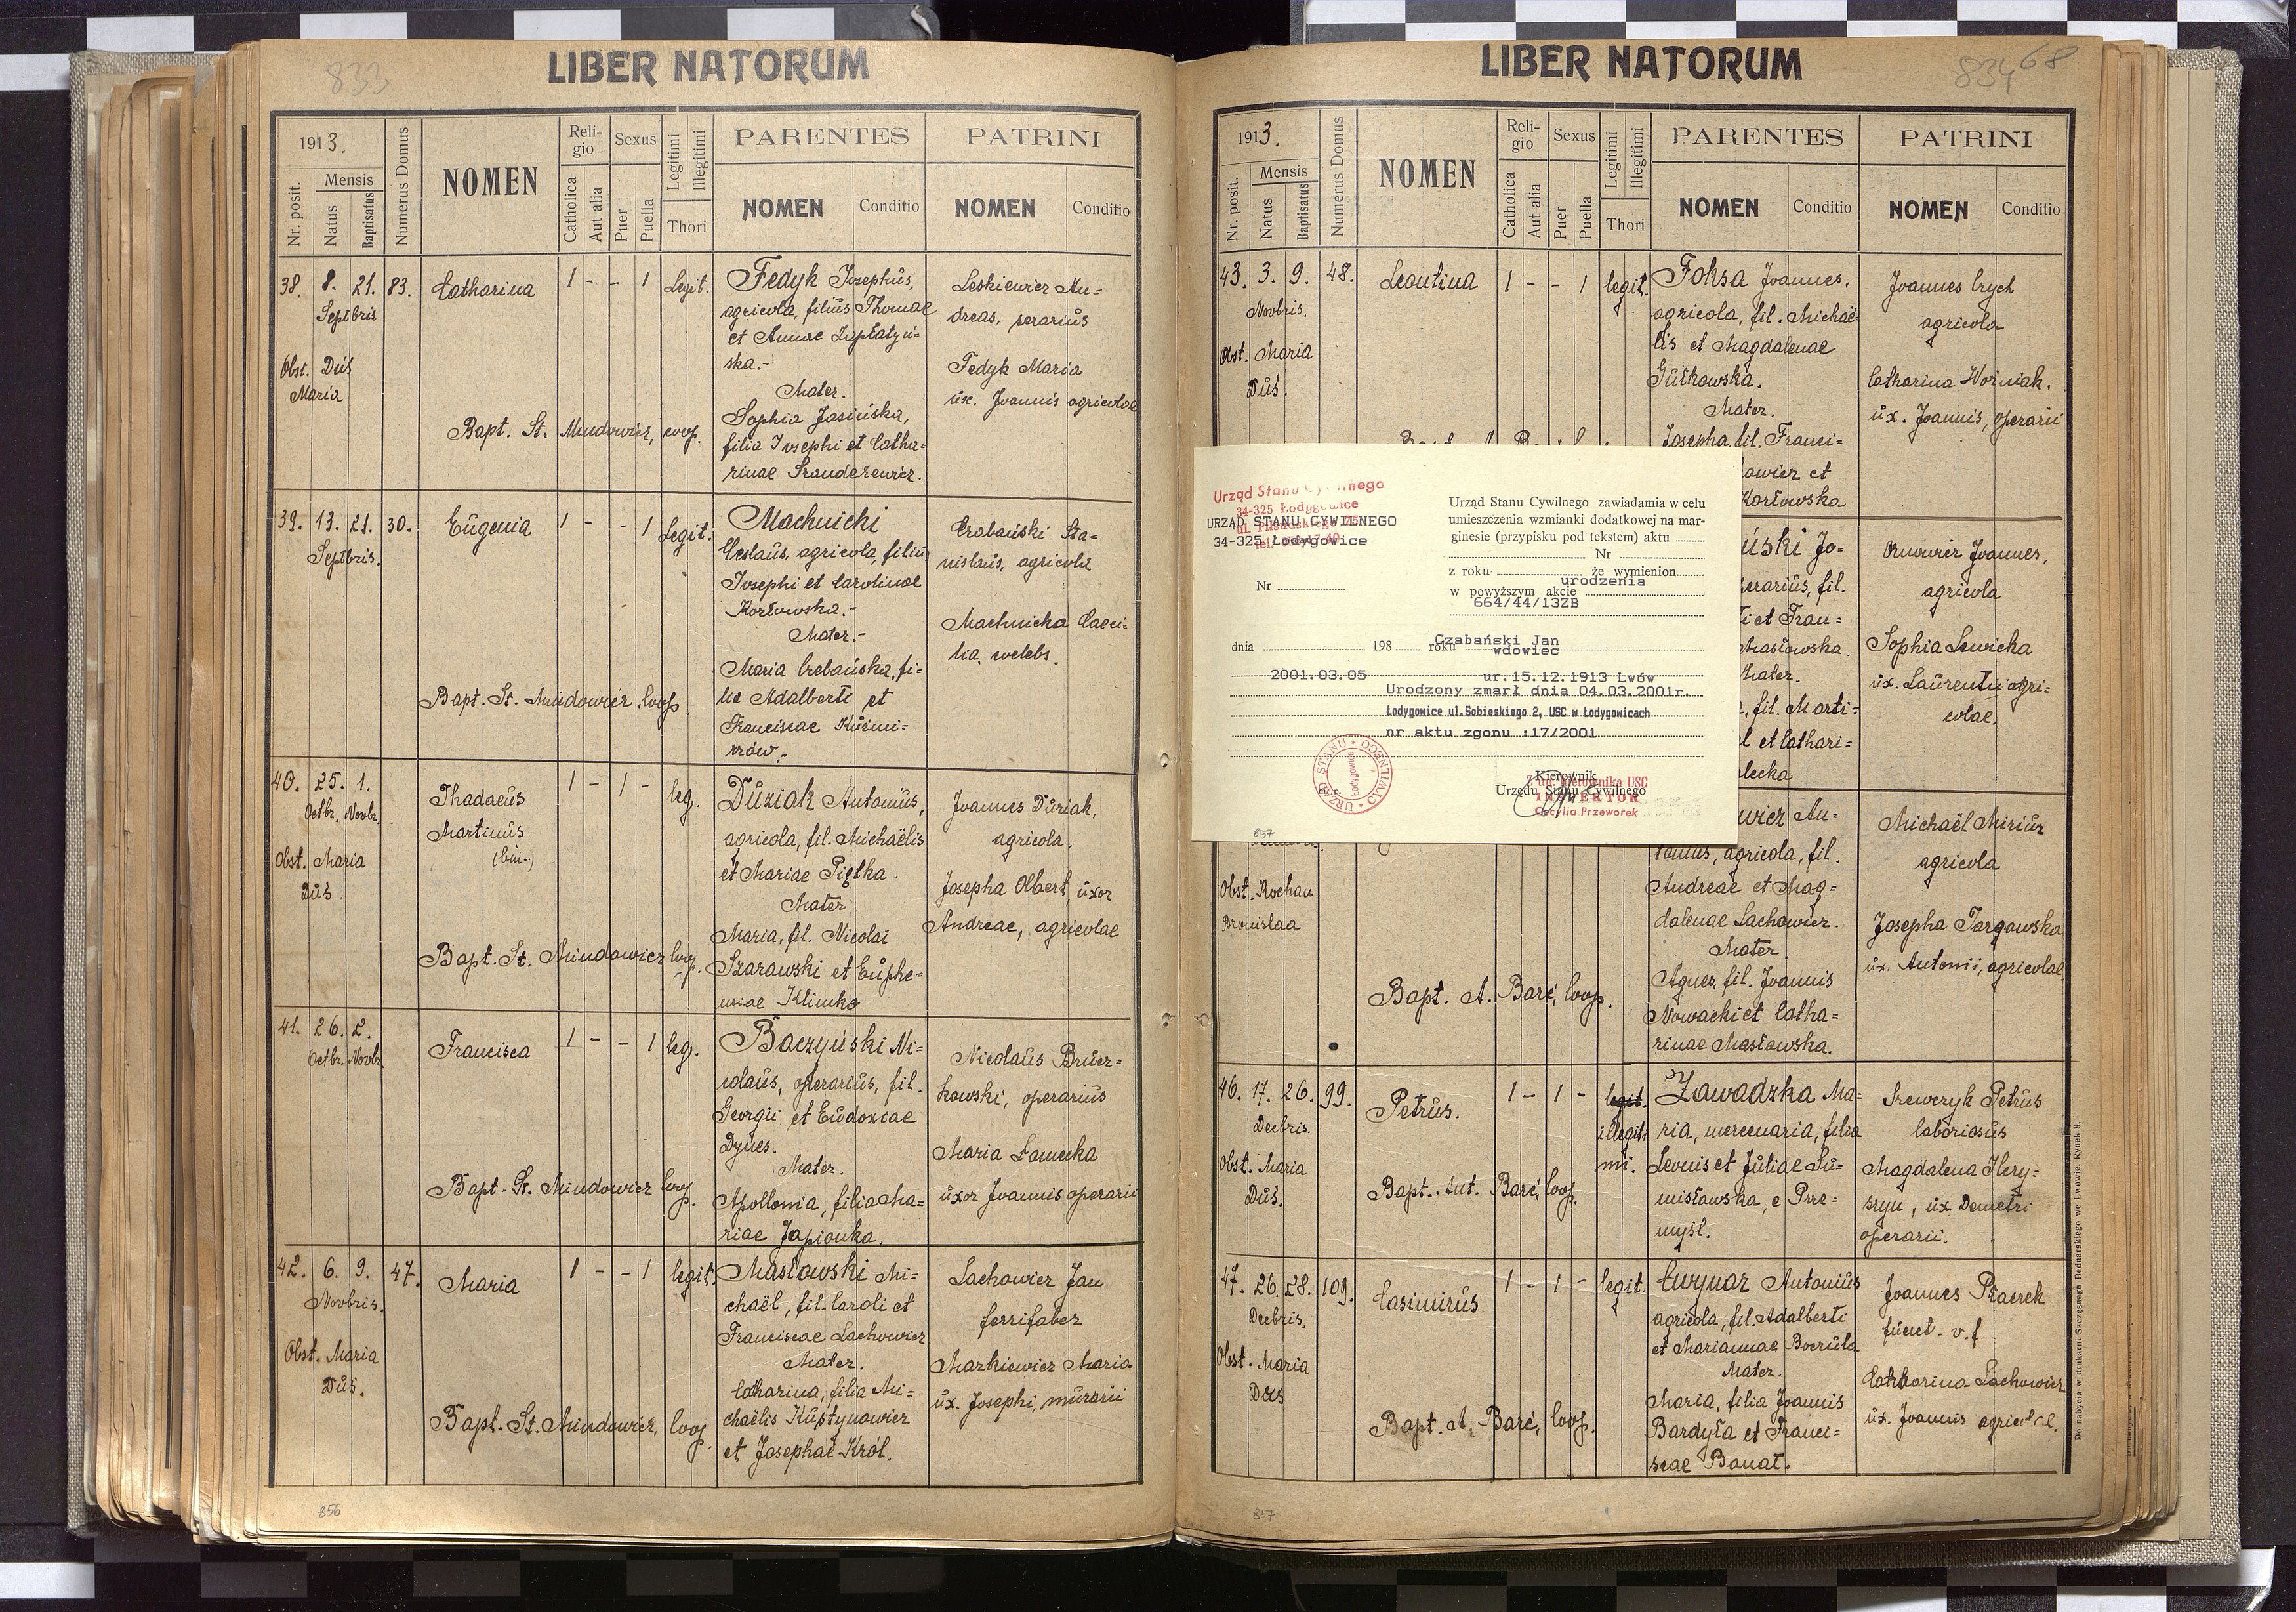 833
LIBER NATORUM
1913.
Nr. posit.
Mensis
Natus
Baptisatus
Numerus Domus
NOMEN
Religio
Catholica
Aut alia
Sexus
Puer
Puella
Legitimi
Illegitimi
Thori
PARENTES
NOMEN
Conditio
PATRINI
NOMEN
Conditio
38. 8. 21. 83. Catharina 1 - - 1 Legit.
Septbris
Obst. Duś
Maria
Bapt. St. Mindowicz, coop.
Fedyk Josephus,
agricola, filius Thomae
et Annae Zapłatyń=
ska.-
Mater.
Sophia Jasińska,
filia Josephi et Catha=
rinae
Leskiewicz An=
dreas,
Fedyk Maria
ux. Joannis agricolae
39. 13. 21. 30. Eugenia 1 - - 1 Legit.
Septbris.
Bapt. St. Mindowicz coop.
Machnicki
Ceslaus, agricola, filius
Josephi et Carolinae
Kozłowska.-
Mater.-
Maria Czebańska, fi=
lia Adalberti et
Franciscae Kuźmi=
rzów.-
Czabański Sta=
nislaus, agricola
Machnicka Caeci=
lia,
40. 25. 1. Thadaeus 1 - 1 - leg.
Octbr. Novbr.
Martinus
(bin.)
Obst. Maria
Duś.
Bapt. St. Mindowicz coop.
Duziak Antonius,
agricola, fil. Michaëlis
et Mariae Piętka.
Mater
Maria, fil. Nicolai
Szarawski et Euphe=
miae Klimko
Joannes Duziak,
agricola.
Josepha Olbert, uxor
Andreae, agricolae
41. 26. 2. Francisca 1 - - 1 leg.
Octbr. Novbr.
Bapt. St. Mindowicz coop.
Baczyński Ni=
colaus, operarius, fil.
Georgii et Eudoxiae
Dynes.
Mater.
Apollonia, filia Ma=
riae Japionka.
Nicolaus Brucz=
kowski, operarius
Maria
uxor Joannis operarii
42. 6. 9. 47. Maria 1 - - 1 legit.
Novbris.
Obst. Maria
Duś.
Bapt. St. Mindowicz, coop.
Masłowski Mi=
chaël, fil. Caroli et
Franciscae Lachowicz
Mater.
Catharina, filia Mi=
chaëlis Kustynowicz
et Josephae Król.
Lachowicz Jan
ferrifaber
Markiewicz Maria
ux. Josephi, murarii
856
LIBER NATORUM
834 68
1913.
Nr. posit.
Mensis
Natus
Baptisatus
Numerus Domus
NOMEN
Religio
Catholica
Aut alia
Sexus
Puer
Puella
Legitimi
Illegitimi
Thori
PARENTES
NOMEN
Conditio
PATRINI
NOMEN
Conditio
43. 3. 9. 48. Leontina 1 - - 1 legit.
Novbris.
Obst. Maria
Duś.
Foksa Joannes,
agricola, fil. Michaë=
lis et Magdalenae
Gutkowska.
Mater.
Josepha, fil. Franci=
owicz et
Kozłowska
Joannes Czych
agricola
Catharina Woźniak.
ux. Joannis, operarii
Urząd Stanu Cywilnego
34-325 Łodygowice
URZĄD STANU CYWILNEGO
34-325 Łodygowice
Nr
Urząd Stanu Cywilnego zawiadamia w celu
umieszczenia wzmianki dodatkowej na mar-
ginesie (przypisku pod tekstem) aktu
Nr
z roku że wymienion
urodzenia
w powyższym akcie
664/44/13ZB
dnia 198 roku
Czabański Jan
wdowiec
2001.03.05 ur.15.12.1913 Lwów
Urodzony zmarł dnia 04.03.2001r.
Łodygowice ul.Sobieskiego 2, USC w Łodygowicach
nr aktu zgonu :17/2001
URZĄD STANU CYWILNEGO
Łodygowice
m. p.
Kierownik
Urzędu Stanu Cywilnego
z up. Kierownika USC
INSPEKTOR
Cecylia Przeworek
857
ński Jo=
erarius, fil.
i et Fran=
Masłowska.
Mater.
, fil. Marti=
l et Cathari=
lecka
Joannes,
agricola
Sophia Lewicka
ux. Laurentii agri=
colae.
Obst. Kochan
Bronislaa
Bapt. A. Barć, coop.
wicz An=
tonius, agricola, fil.
Andreae et Mag=
dalenae Lachowicz.
Mater.
Agnes, fil. Joannis
Nowacki et Catha=
rinae Masłowska.
Michaël Misiur
agricola
Josepha Targowska
ux. Antonii, agricolae
46. 17. 26. 99. Petrus. 1 - 1 - legit.
illegiti
mi.
Decbris.
Obst. Maria
Duś.
Bapt. Ant. Barć, coop.
Zawadzka Ma=
ria, mercenaria, filia
Leonis et Juliae Su=
misławska, e Prze=
myśl.
Szewczyk Petrus
laboriosus
Magdalena Hery=
szyn, ux Demetri
operarii.
47. 26. 28. 109. Casimirus 1 - 1 - legit.
Decbris.
Obst. Maria
Duś
Bapt. A. Barć, coop.
Cwynar Antonius
agricola, fil. Adalberti
et Mariannae Boczula
Mater.
Maria, filia Joannis
Bardyła et Franci=
scae Banat.
Joannes Ptaczek
funct. v. f.
Catharina Lachowicz
ux. Joannis agricolae.
Do nabycia w drukarni Szczęsnego Bednarskiego we Lwowie, Rynek 9.
857